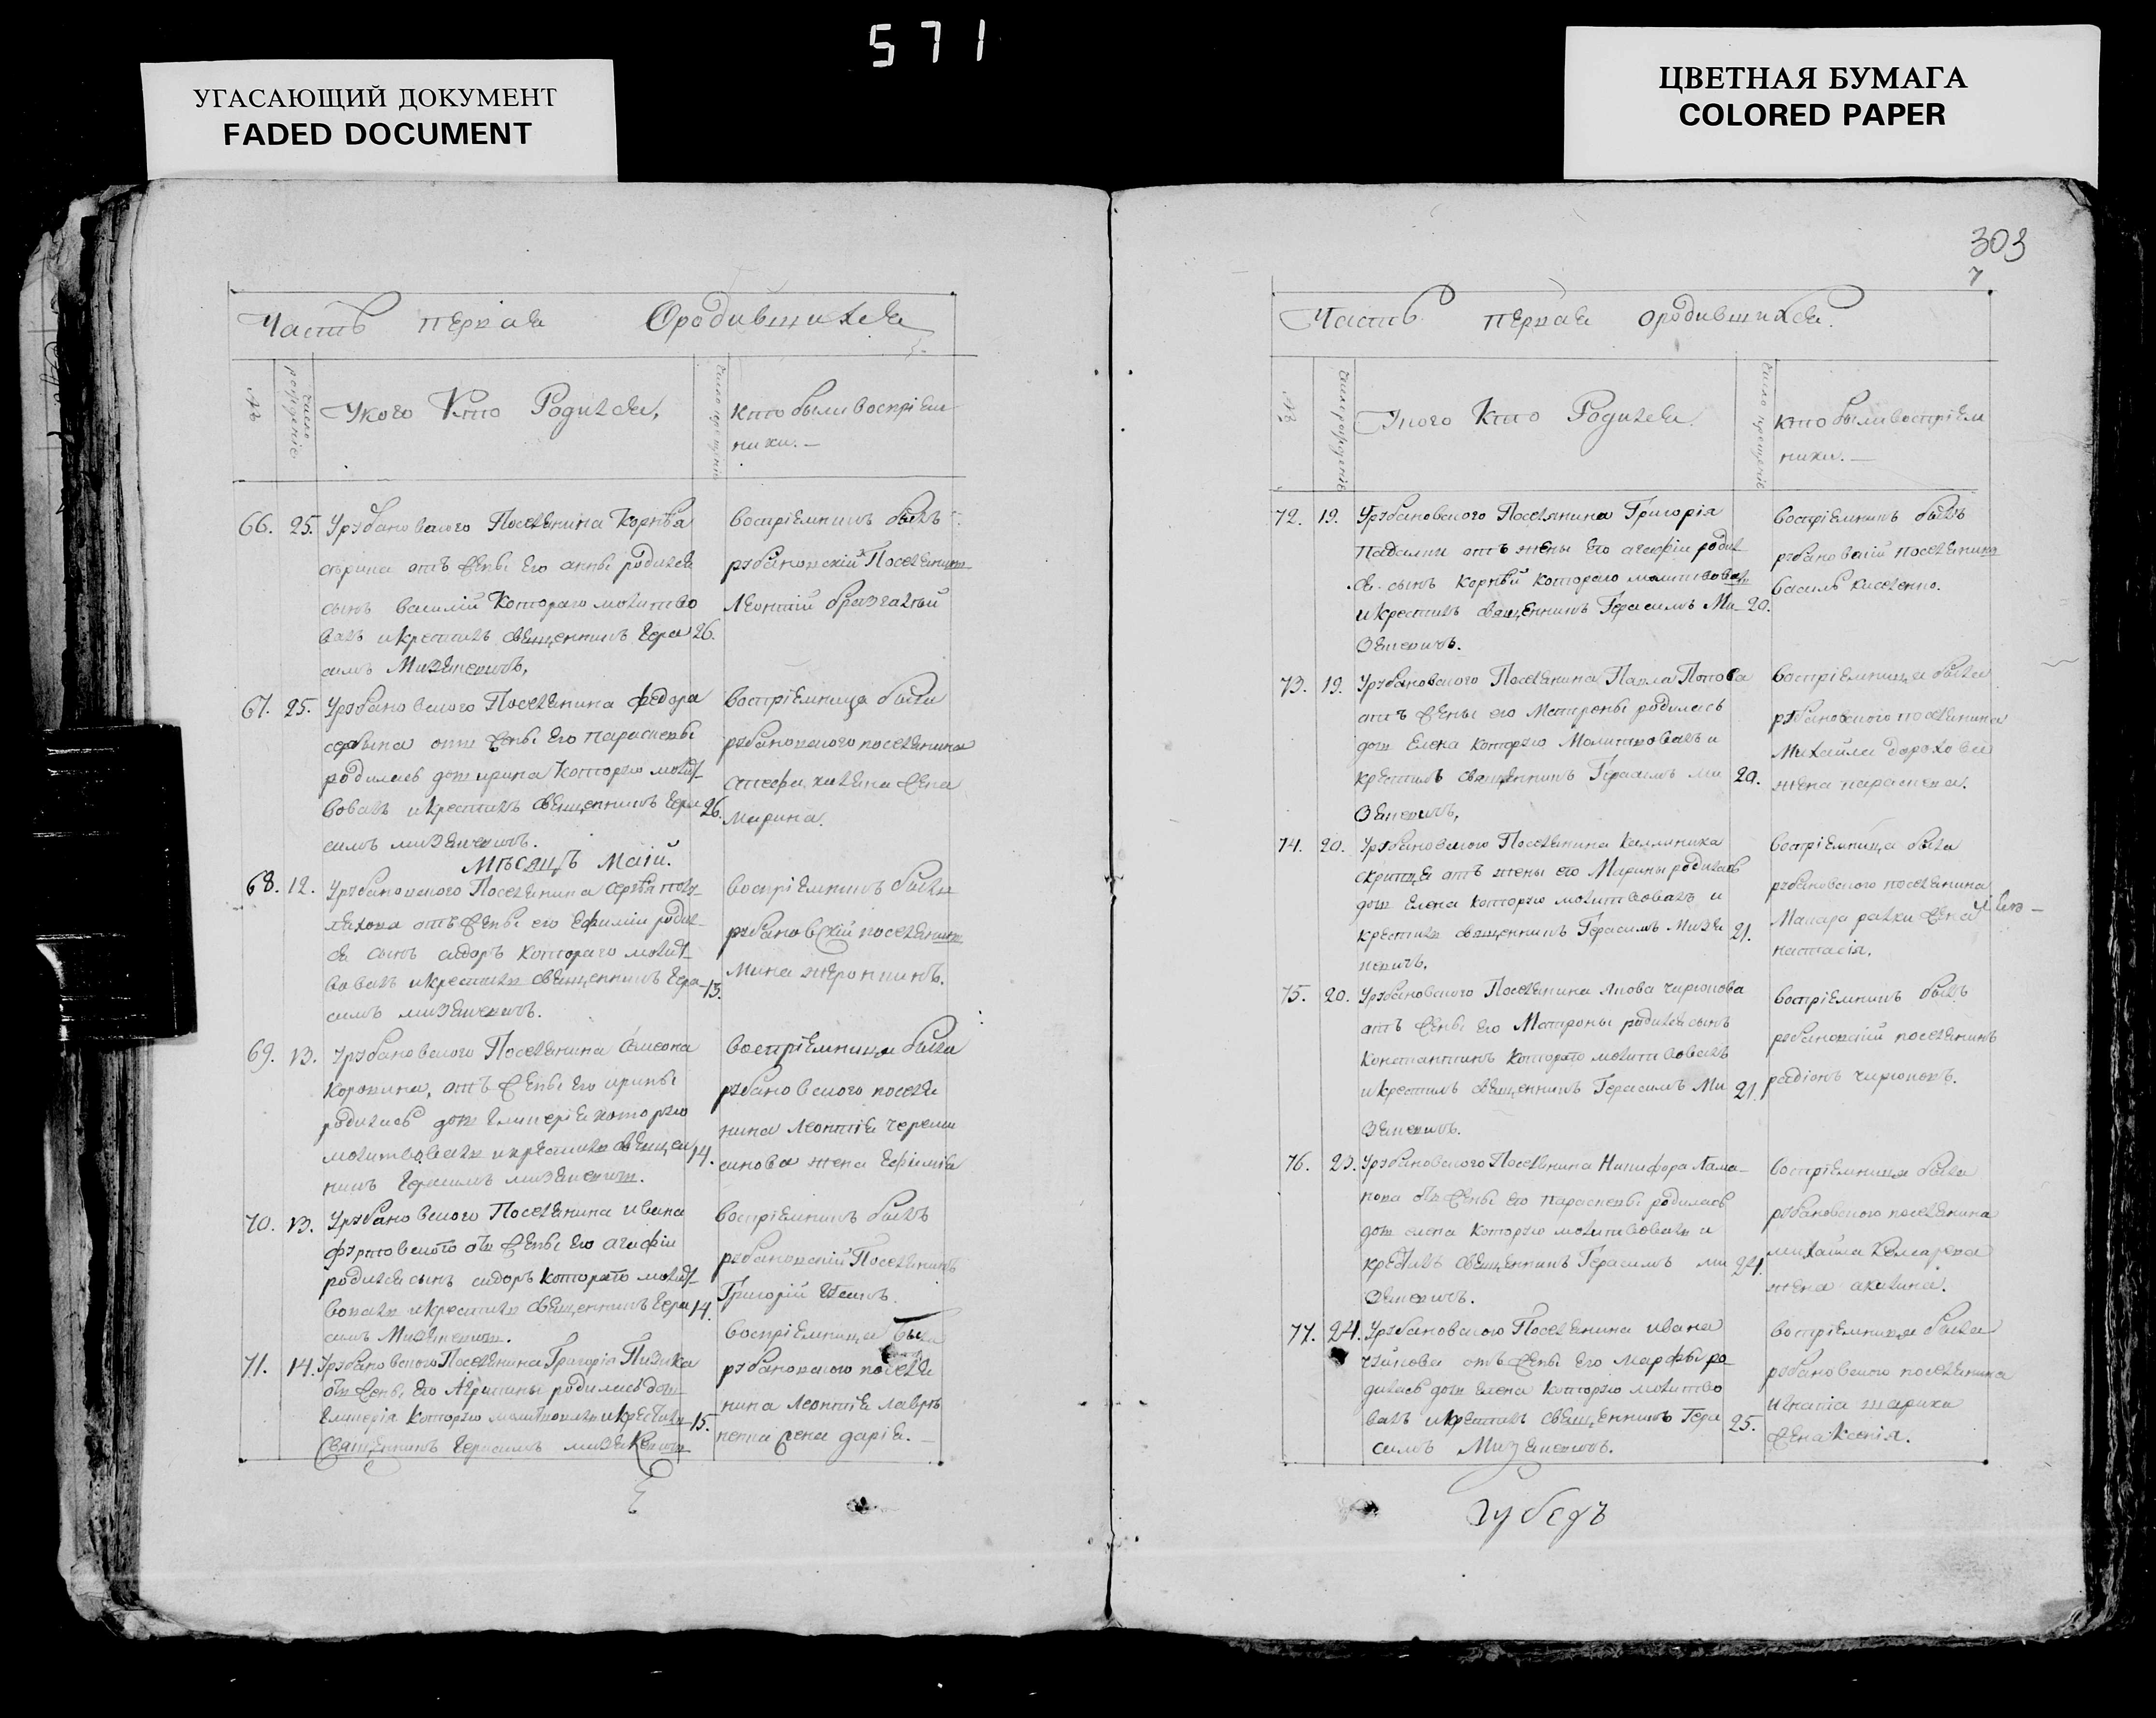 571
УГАСАЮЩИЙ ДОКУМЕНТ
FADED DOCUMENT
ЦВЕТНАЯ БУМАГА
COLORED PAPER
Часть первая Ородившихся
№
число рождения
Укого Кто Родился,
число крещения
кто были воспріем
ники. —
66. 25. Урубановского Поселянина Корнѣя
отъ жены Его анны родился
сынъ василій Которого молитво
валъ икрестилъ священникъ Гера 26.
симъ Мизѣкевичъ,
воспріемникъ былъ
рубановскій Поселянинъ
Леонтій
67. 25. Урубановского Поселянина Федора
сербина отъ жены Его параскевы
родилась дочь ирина Которую молит
вовалъ икрестилъ священникъ Гера 26.
симъ мизѣкевичъ.
воспріемница была
рубановского поселянина
жена
Марина.
Мѣсяцъ Маій.
68. 12. Урубановского Поселянина Сергѣя
отъ жены его Ефиміи родил
ся сынъ сидоръ Которого молит
вовалъ икрестилъ священникъ Гера 13.
симъ мизѣкевичъ.
воспріемникъ былъ
рубановскій поселянинъ
Мина
69. 13. Урубановского Поселянина Симеона
Коропина, отъ жены Его ирины
родилась дочь Гликерія которую
молитвовалъ икрестилъ священ 14.
никъ Герасимъ мизѣкевичъ.
воспріемница была
рубановского поселя
нина Леонтія
жена Ефимія
70. 13. Урубановского Поселянина ивана
отъ жены Его агафіи
родился сынъ сидоръ Которого молит
вовалъ икрестилъ священникъ Гера 14.
симъ Мизѣкевичъ.
воспріемникъ былъ
рубановскій Поселянинъ
Григорій
71. 14. Урубановского Поселянина Григорія Пизика
отъ жены Его Агрипины родилась дочь
Гликерія Которую молитвовалъ икрестилъ 15.
Священникъ Герасимъ мизѣкевичъ
воспріемница была
рубановского поселя
нина Леонтія
жена дарія. —
303
7
Часть первая ородившихся.
№
число рожденія
Укого Кто Родился.
число крещенія
кто были воспріем
ники. —
72. 19. Урубановского Поселянина Григорія
Падалки отъ жены Его агафіи родил
ся сынъ Корнѣй Которого молитвовалъ
икрестилъ священникъ Герасимъ Ми 20.
зѣкевичъ.
воспріемникъ былъ
рубановскій поселянинъ
василь киселенко.
73. 19. Урубановского Поселянина Павла Попова
отъ жены его Матроны родилась
дочь Елена которую Молитвовалъ и
крестилъ священникъ Герасимъ ми 20.
зѣкевичъ,
воспріемница была
рубановского поселянина
Михайла дорохова
жена параскева.
74. 20. Урубановского Поселянина Каллиника
скрипця отъ жены его Марины родилась
дочь Елена которую молитвовалъ и
крестилъ священникъ Герасимъ Мизѣ 21.
кевичъ.
воспріемница была
рубановского поселянина
Макара жена
настасія.
75. 20. Урубановского Поселянина Якова чирюкова
отъ жены Его Матроны родился сынъ
Константинъ Которого молитвовалъ
икрестилъ священникъ Герасимъ Ми 21.
зѣкевичъ.
воспріемникъ былъ
рубановскій поселянинъ
радіонъ чирюковъ.
76. 23. Урубановского Поселянина Никифора Лама
нова отъ жены Его параскевы родилась
дочь елена Которую молитвовалъ и
крестилъ священникъ Герасимъ ми 24.
зѣкевичъ.
воспріемница была
рубановского поселянина
михайла
жена акилина.
77. 24. Урубановского Поселянина ивана
чуйкова отъ жены Его Марфы ро
дилась дочь Елена Которую молитво
валъ икрестилъ священникъ Гера 25.
симъ Мизѣкевичъ.
воспріемница была
рубановского поселянина
игнатія шарика
жена Ксенія.